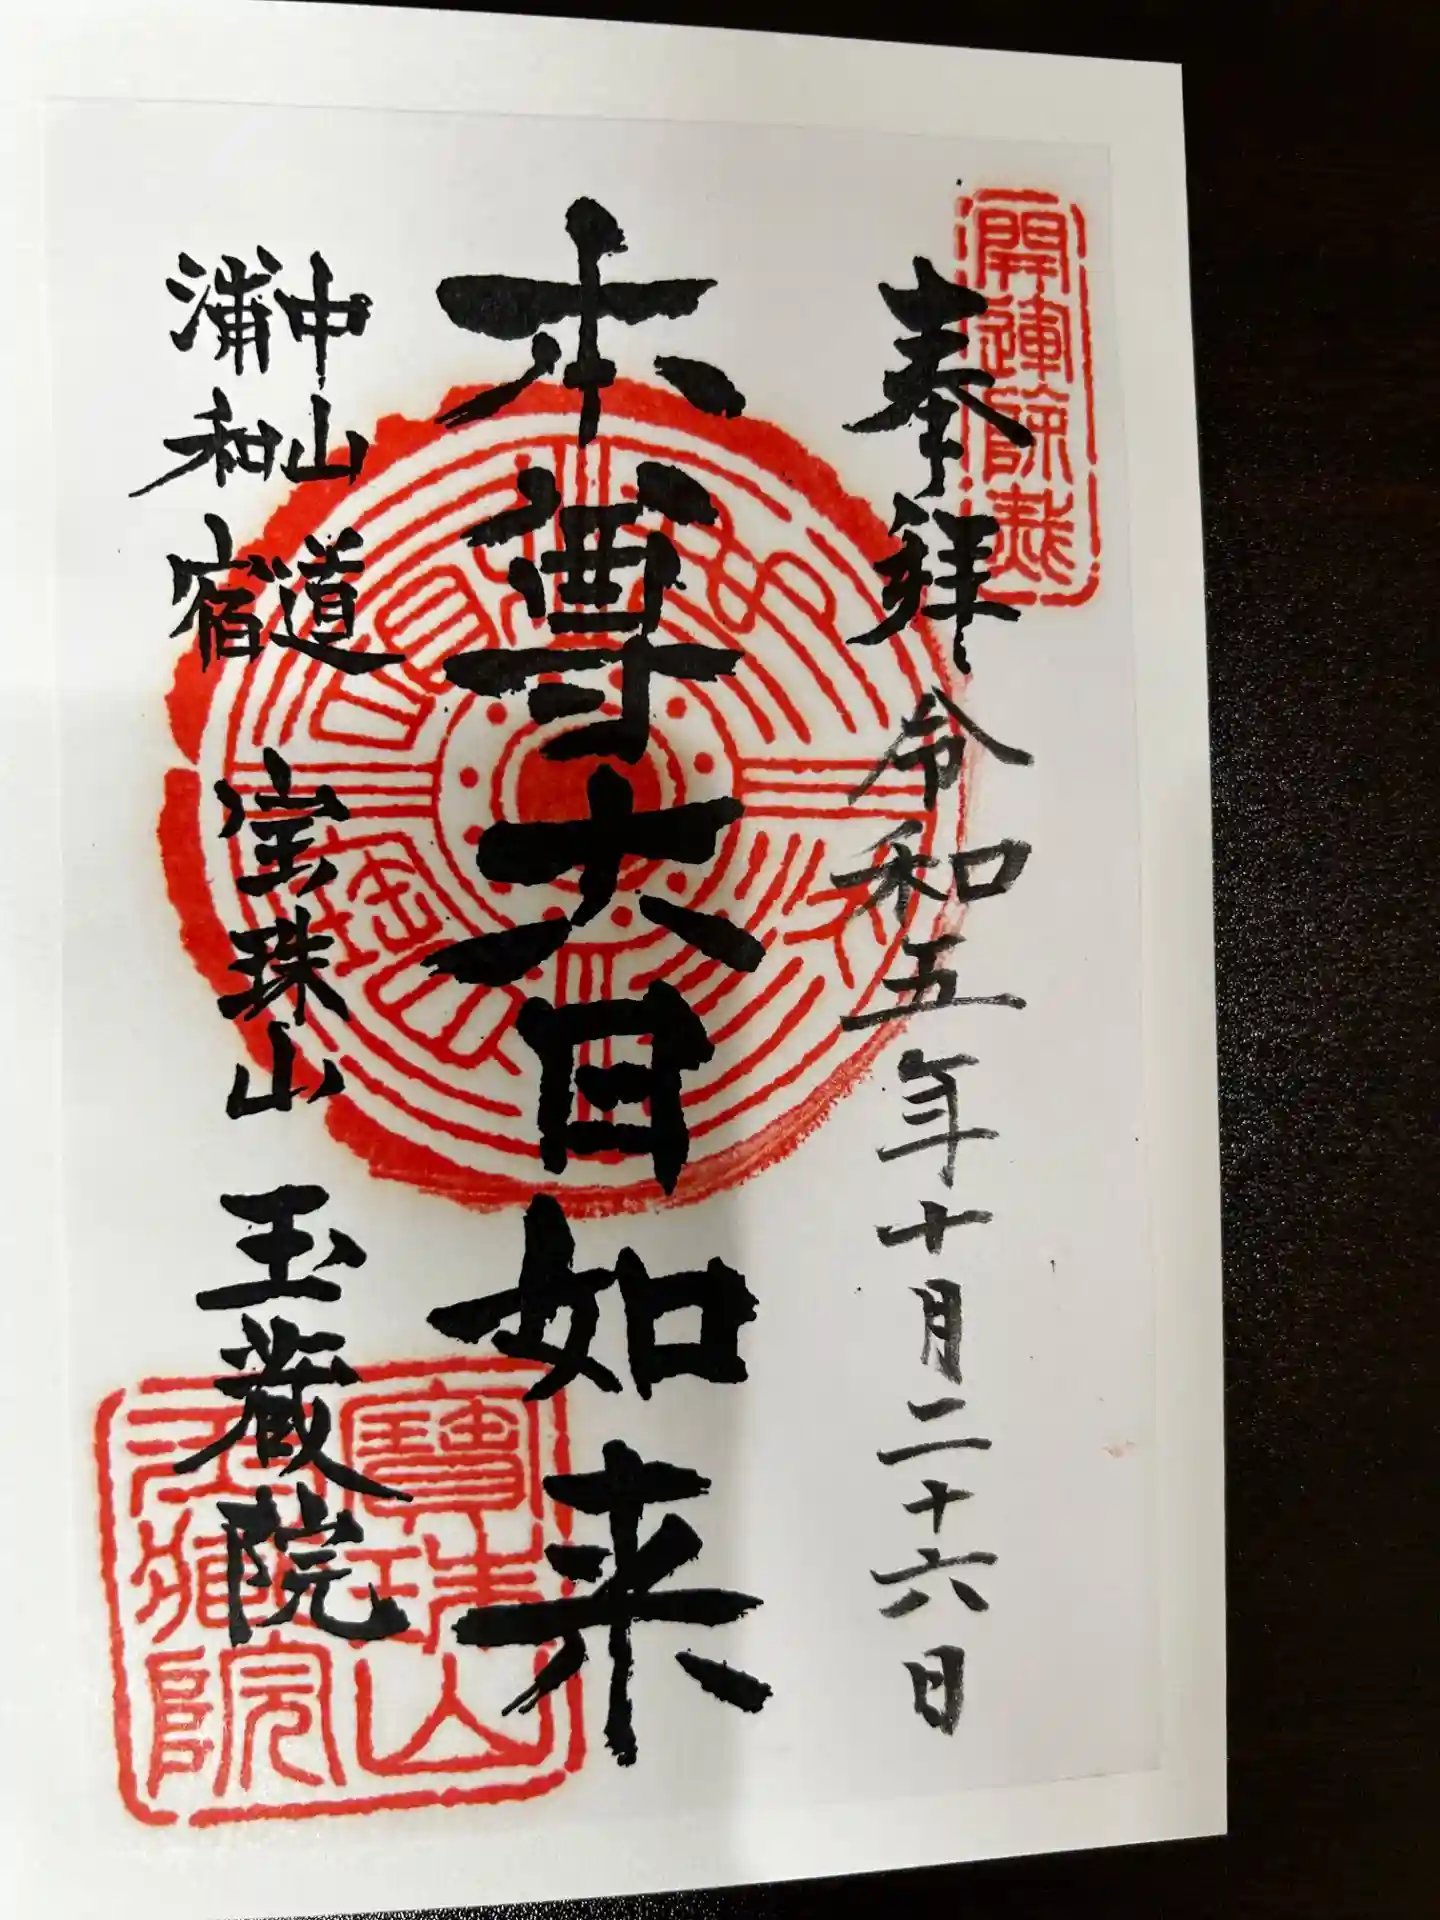 開運除災
奉拝 令和五年十月二十六日
本尊大日如来
中山道
浦和宿
宝珠山 玉蔵院
寶珠山
玉藏院